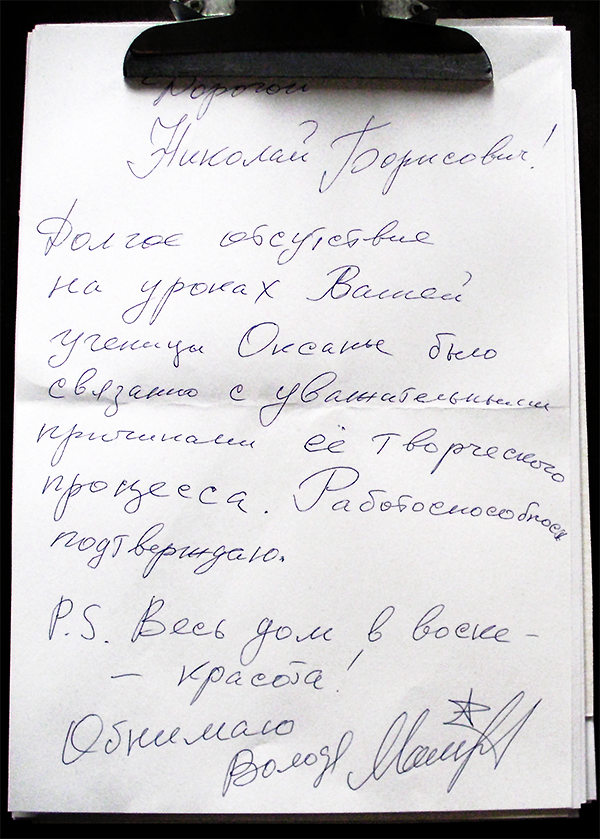 Дорогой
Николай Борисович!
Долгое отсутствие
на уроках Вашей
ученицы Оксаны было
связанно с уважительными
причинами её творческого
процесса. Работоспособность
подтверждаю.
P.S. Весь дом в воске -
- красота!
Обнимаю
Володя